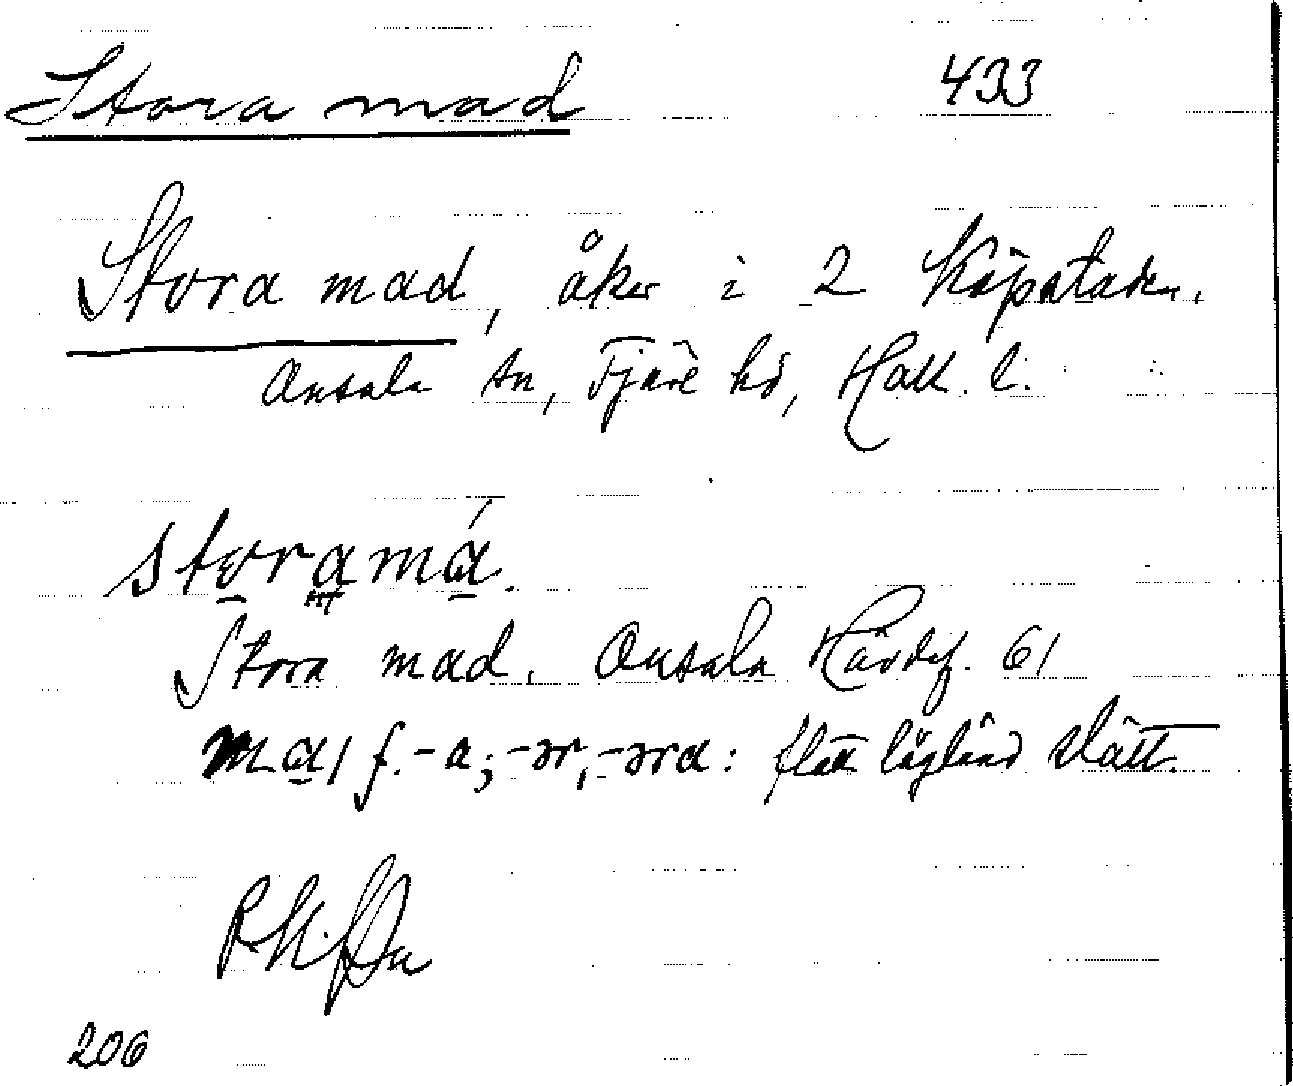 Stora mad 433
Stora mad, åker i 2 Köpstaden.
Onsala sn, Fjäre hd, Hall. l.
storamá.
Stora mad. Onsala Hävdef. 61
ma/ f. -a; -ər, -əra: flat lågländ slätt.
206